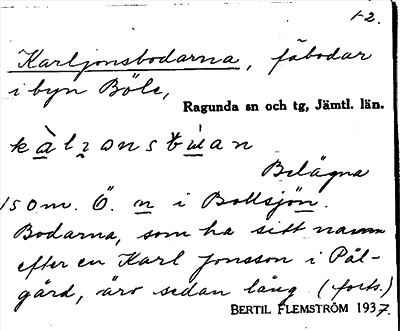 1-2.
Karljonsbodarna, fäbodar
i byn Böle,
Ragunda sn och tg, Jämtl. län.
Belägna
150 m. Ö. n i Bollsjön.
Bodarna, som ha sitt namn
efter en Karl Jonsson i Pål-
gård, äro sedan lång (forts.)
BERTIL FLEMSTRÖM 1937.